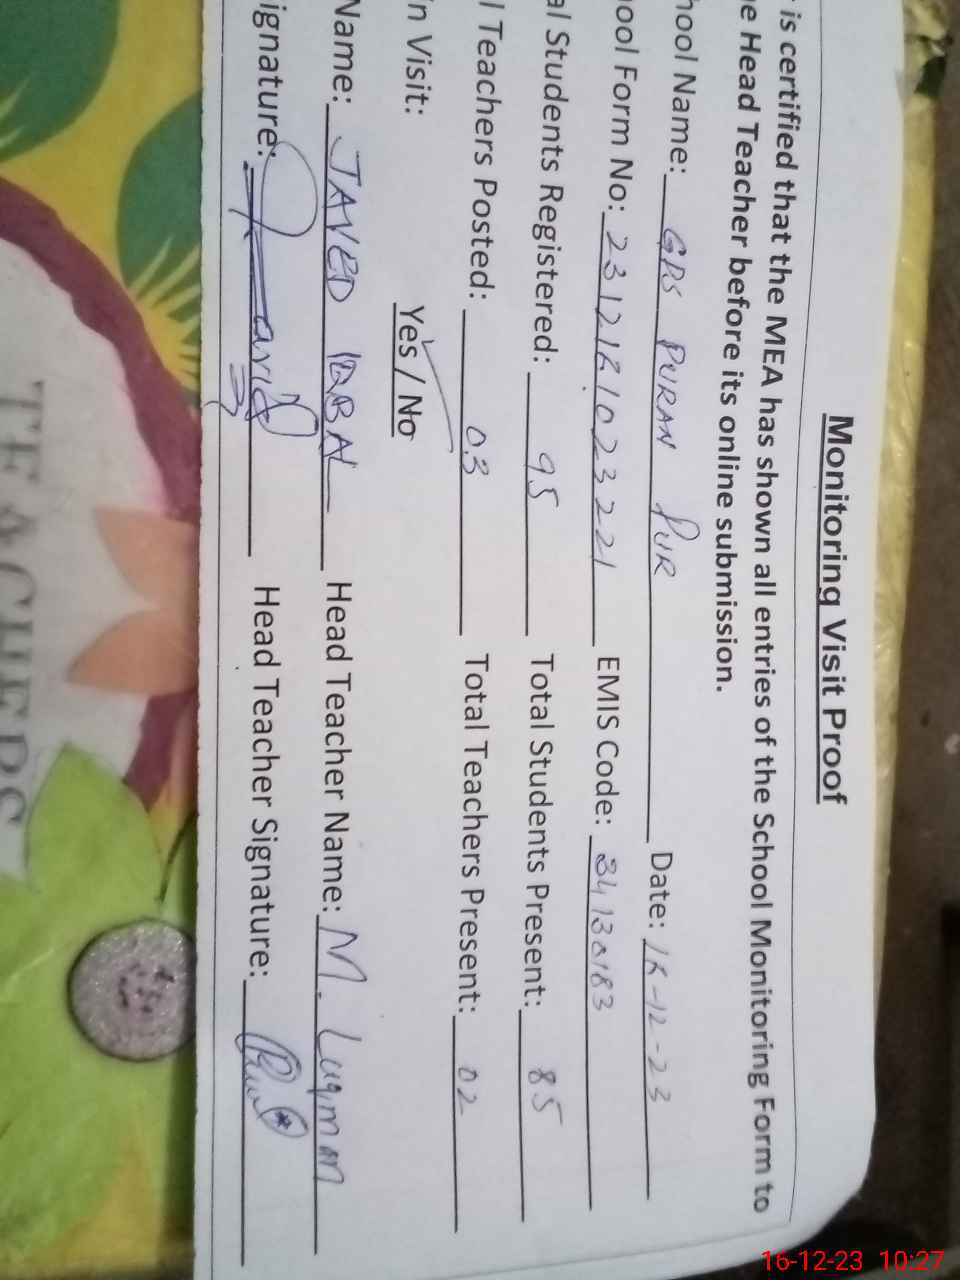 Monitoring Visit Proof
is certified that the MEA has shown all entries of the School Monitoring Form to
e Head Teacher before its online submission.
hool Name: GPS PURAN PUR Date: 16-12-23
ool Form No: 2312161023221 EMIS Code: 34130183
al Students Registered: 95 Total Students Present: 85
l Teachers Posted: 03 Total Teachers Present: 02
in Visit: Yes / No
Name: JAVED IQBAL Head Teacher Name: M. Luqman
ignature: Head Teacher Signature:
TEACHERS
16-12-23 10:27